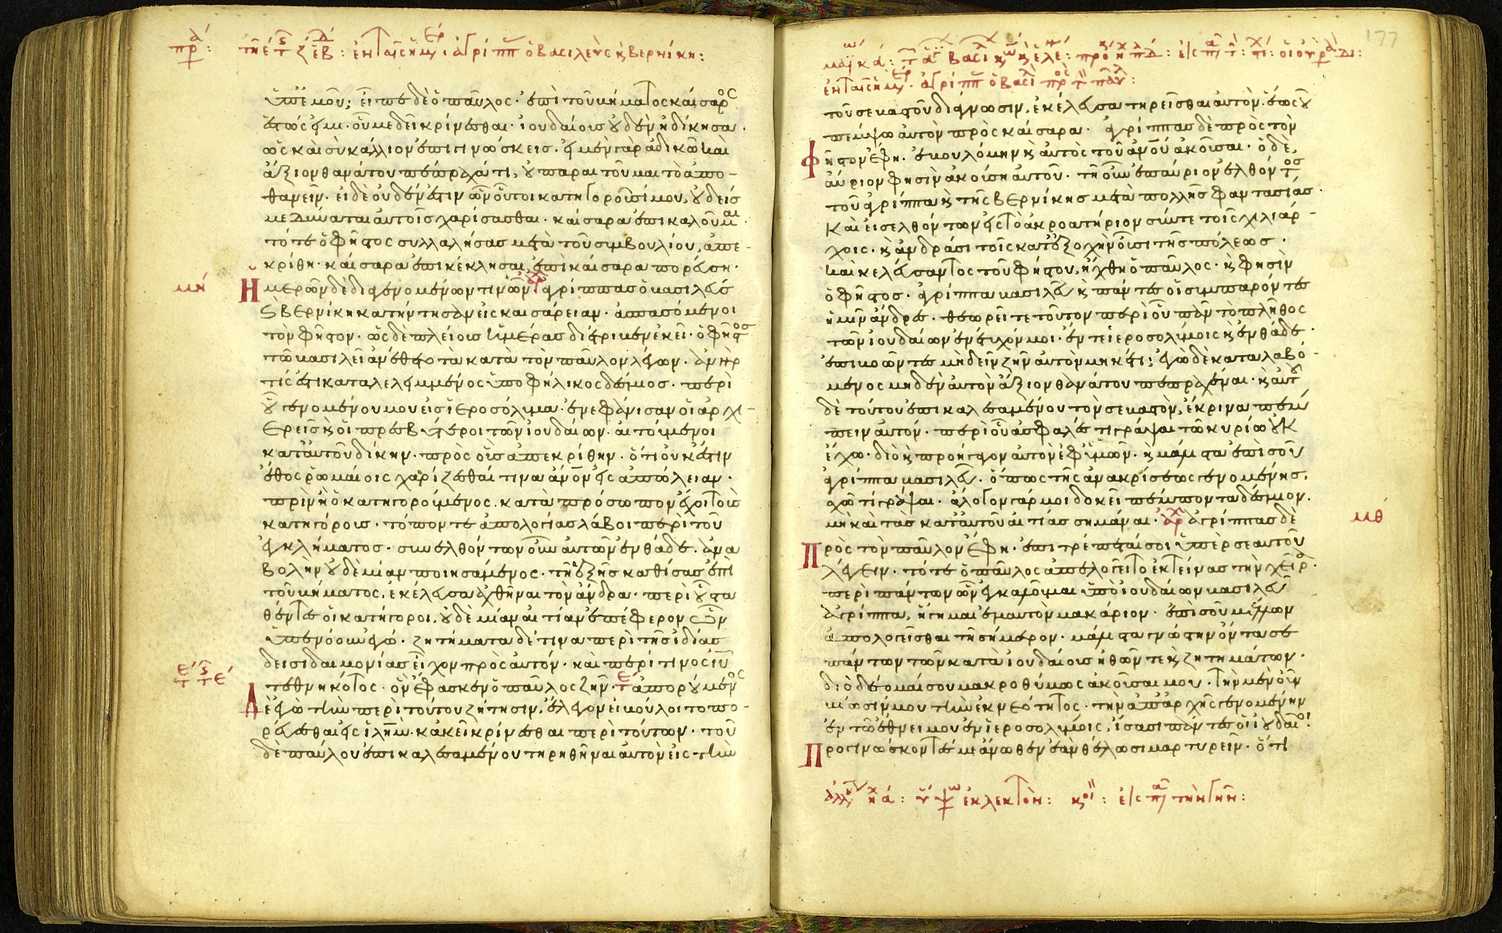 ἐν ταῖς ἡμ· ἀγρίππ ὁ βασιλεὺς κ βερνίκη:
ὑπ' ἐμοῦ; εἶπε δὲ ὁ παῦλος· ἐπὶ τοῦ βήματος καίσαρος
ἑστώς εἰμι· οὗ με δεῖ κρίνεσθαι· ἰουδαίους οὐδὲν ἠδίκησα·
ὡς καὶ σὺ κάλλιον ἐπιγινώσκεις· εἰ μὲν γὰρ ἀδικῶ καὶ
ἄξιον θανάτου πέπραχά τι, οὐ παραιτοῦμαι τὸ ἀπο-
θανεῖν· εἰ δὲ οὐδέν ἐστιν ὧν οὗτοι κατηγοροῦσί μου, οὐδείς
με δύναται αὐτοῖς χαρίσασθαι· καίσαρα ἐπικαλοῦμαι·
τότε ὁ φῆστος συλλαλήσας μετὰ τοῦ συμβουλίου, ἀπε-
κρίθη· καίσαρα ἐπικέκλησαι, ἐπὶ καίσαρα πορεύση·
μή Ἡμερῶν δὲ διαγενομένων τινῶν ἀγρίππας ὁ βασιλεὺς
κ βερνίκη κατήντησαν εἰς καισάρειαν· ἀσπασόμενοι
τὸν φῆστον· ὡς δὲ πλείους ἡμέρας διέτριβεν ἐκεῖ· ὁ φῆστος
τῶ βασιλεῖ ἀνέθετο τὰ κατὰ τὸν παῦλον λέγων· ἀνήρ
τίς ἐστι καταλελειμμένος ὑπὸ φήλικος δέσμιος· περὶ
οὗ γενομένου μου εἰς ἱεροσόλυμα· ἐνεφάνισαν οἱ ἀρχι-
ερεῖς κ οἱ πρεσβύτεροι τῶν ἰουδαίων· αἰτούμενοι
κατ' αὐτοῦ δίκην· πρὸς οὓς ἀπεκρίθην· ὅτι οὐκ ἔστιν
ἔθος ῥωμαίοις χαρίζεσθαί τινα ἄνον εἰς ἀπώλειαν·
πρὶν ἢ ὁ κατηγορούμενος· κατὰ πρόσωπον ἔχοι τοὺς
κατηγόρους· τόπον τε ἀπολογίας λάβοι περὶ τοῦ
ἐγκλήματος· συνελθόντων οὖν αὐτῶν ἐνθάδε· ἀνα
βολὴν οὐδεμίαν ποιησάμενος· τῆ ἑξῆς καθίσας ἐπὶ
τοῦ βήματος, ἐκέλευσα ἀχθῆναι τὸν ἄνδρα· περὶ οὗ στα
θέντες οἱ κατήγοροι, οὐδεμίαν αἰτίαν ἐπέφερον ὧν
ὑπενόουν ἐγώ· ζητήματα δέ τινα περὶ τῆς ἰδίας
δεισιδαιμονίας εἶχον πρὸς αὐτόν· καὶ περί τινος ἰυ
τεθνηκότος· ὃν ἔφασκεν ὁ παῦλος ζῆν· ἀπορούμενος
Δὲ ἐγὼ τὴν περὶ τούτου ζήτησιν, ἔλεγον εἰ βούλοιτο πο-
ρεύεσθαι εἰς ἱλημ κἀκεῖ κρίνεσθαι περὶ τούτων· τοῦ
δὲ παύλου ἐπικαλεσαμένου τηρηθῆναι αὐτὸν εἰς τὴν
177
ἐν ταῖς ἡμ· ἀγρίππ ὁ βασι
τοῦ σεβαστοῦ διάγνωσιν, ἐκέλευσα τηρεῖσθαι αὐτὸν· ἕως οὗ
πέμψω αὐτὸν πρὸς καίσαρα· ἀγρίππας δὲ πρὸς τὸν
Φῆστον ἔφη· ἐβουλόμην κ αὐτὸς τοῦ ἀνου ἀκοῦσαι· ὁ δὲ,
αὔριον φησὶν ἀκούση αὐτοῦ· τῆ οὖν ἐπαύριον ἐλθόντος
τοῦ ἀγρίππα κ τῆς βερνίκης μετὰ πολλῆς φαντασίας·
καὶ εἰσελθόντων εἰς τὸ ἀκροατήριον σύν τε τοῖς χιλιάρ-
χοις· κ ἀνδράσι τοῖς κατ' ἐξοχὴν οὖσι τῆς πόλεως·
καὶ κελεύσαντος τοῦ φήστου, ἤχθη ὁ παῦλος· κ φησὶν
ὁ φῆστος· ἀγρίππα βασιλεῦ κ πάντες οἱ συμπαρόντες
ἡμῖν ἄνδρες· θεωρεῖτε τοῦτον περὶ οὗ πᾶν τὸ πλῆθος
τῶν ἰουδαίων ἐνέτυχόν μοι· ἔν τε ἱεροσολύμοις κ ἐνθάδε·
ἐπιβοῶντες μὴ δεῖν ζῆν αὐτὸν μηκέτι; ἐγὼ δὲ καταλαβό-
μενος μηδὲν αὐτὸν ἄξιον θανάτου πεπραχέναι· κ αὐτοῦ
δὲ τούτου ἐπικαλεσαμένου τὸν σεβαστὸν, ἔκρινα πέμ
πειν αὐτόν· περὶ οὗ ἀσφαλές τι γράψαι τῶ κυρίω οὐκ
ἔχω· διὸ κ προήγαγον αὐτὸν ἐφ' ὑμῶν· κ μάλιστα ἐπὶ σοῦ
ἀγρίππα βασιλεῦ· ὅπως τῆς ἀνακρίσεως γενομένης,
σχῶ τί γράψαι· ἄλογον γάρ μοι δοκεῖ πέμποντα δέσμιον·
μὴ καὶ τὰς κατ' αὐτοῦ αἰτίας σημάναι· ἀγρίππας δὲ μθ
Πρὸς τὸν παῦλον ἔφη· ἐπιτρέπεταί σοι ὑπὲρ σεαυτοῦ
λέγειν· τότε ὁ παῦλος ἀπελογεῖτο ἐκτείνας τὴν χεῖρα·
περὶ πάντων ὧν ἐγκαλοῦμαι ὑπὸ ἰουδαίων βασιλεῦ
ἀγρίππα, ἥγημαι ἐμαυτὸν μακάριον· ἐπὶ σοῦ μέλλων
ἀπολογεῖσθαι τῆ σήμερον· μάλιστα γνώστην ὄντα σε
πάντων τῶν κατὰ ἰουδαίους ἠθῶν τε κ ζητημάτων·
διὸ δέομαί σου μακροθύμως ἀκοῦσαί μου· τὴν μὲν οὖν
βίωσίν μου τὴν ἐκ νεότητος· τὴν ἀπ' ἀρχῆς γενομένην
ἐν τῶ ἔθνει μου ἐν ἱεροσολύμοις, ἴσασι πάντες οἱ ἰουδαῖοι
Προγινώσκοντές με ἄνωθεν ἐὰν θέλωσι μαρτυρεῖν· ὅτι